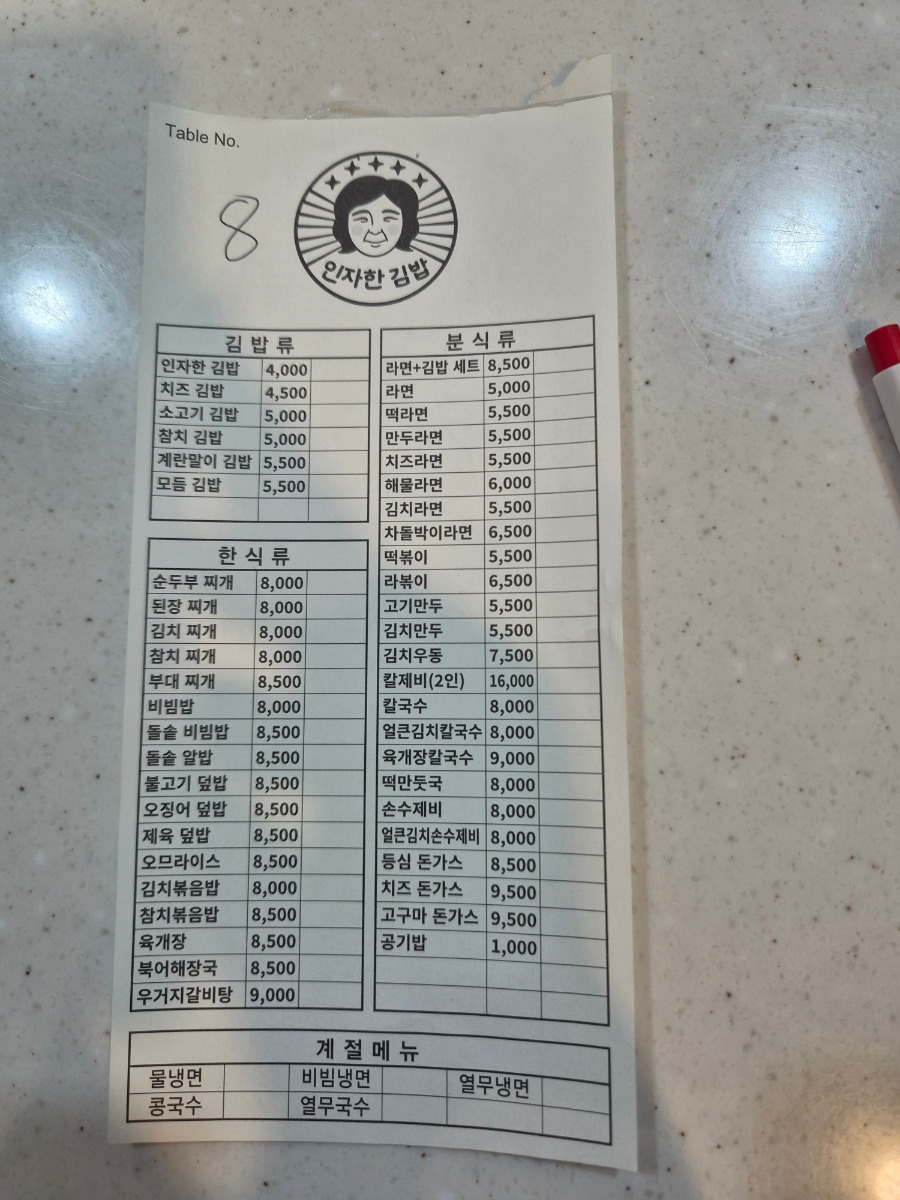 Table No.
8
인자한 김밥
김밥류
인자한 김밥 4,000
치즈 김밥 4,500
소고기 김밥 5,000
참치 김밥 5,000
계란말이 김밥 5,500
모듬 김밥 5,500
한식류
순두부 찌개 8,000
된장 찌개 8,000
김치 찌개 8,000
참치 찌개 8,000
부대 찌개 8,500
비빔밥 8,000
돌솥 비빔밥 8,500
돌솥 알밥 8,500
불고기 덮밥 8,500
오징어 덮밥 8,500
제육 덮밥 8,500
오므라이스 8,500
김치볶음밥 8,000
참치볶음밥 8,500
육개장 8,500
북어해장국 8,500
우거지갈비탕 9,000
분식류
라면+김밥 세트 8,500
라면 5,000
떡라면 5,500
만두라면 5,500
치즈라면 5,500
해물라면 6,000
김치라면 5,500
차돌박이라면 6,500
떡볶이 5,500
라볶이 6,500
고기만두 5,500
김치만두 5,500
김치우동 7,500
칼제비(2인) 16,000
칼국수 8,000
얼큰김치칼국수 8,000
육개장칼국수 9,000
떡만둣국 8,000
손수제비 8,000
얼큰김치손수제비 8,000
등심 돈가스 8,500
치즈 돈가스 9,500
고구마 돈가스 9,500
공기밥 1,000
계절메뉴
물냉면 비빔냉면 열무냉면
콩국수 열무국수